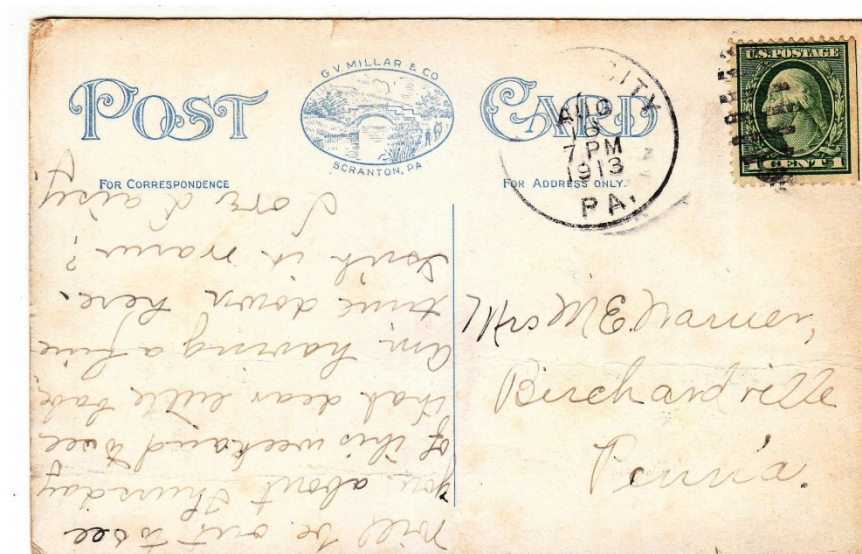 POST CARD
G V MILLAR & CO
SCRANTON, PA
FOR CORRESPONDENCE
FOR ADDRESS ONLY.
CITY
AUG
7 PM
1913
PA.
U.S. POSTAGE
1 CENT 1
Mrs M E Warner,
Birchardville
Penn'a.
Will be out to see
you about Thursday
of this week and see
that dear little babe.
Am having a fine
time down here.
Isn't it warm?
Love Daisy.